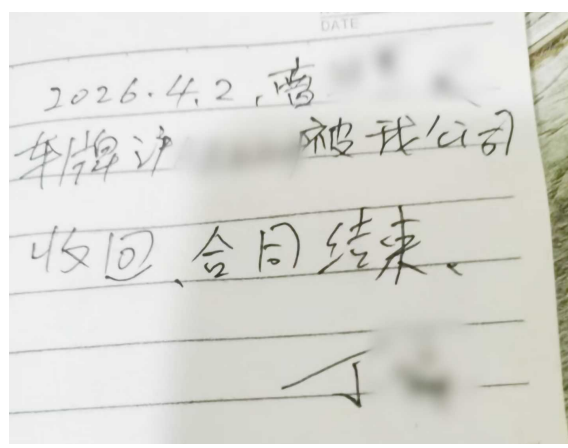 DATE
2026.4.2,曹
车牌沪 被我公司
收回、合同结束、
丁